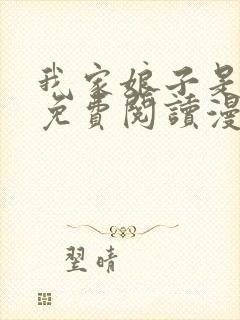 我家娘子是
免費閱讀漫
翌晴